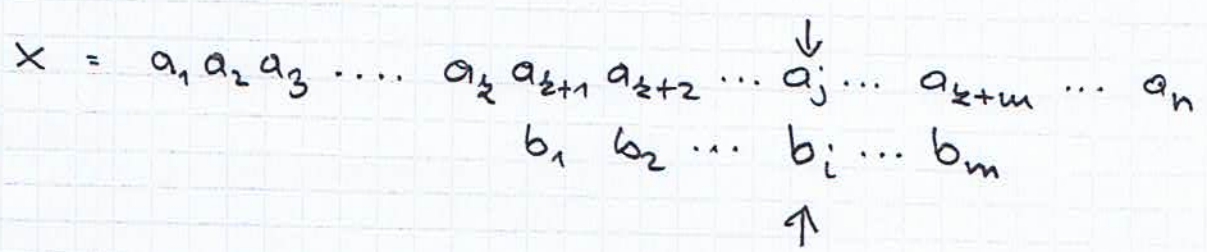 ↓
x = a₁ a₂ a₃ .... a_k a_{k+1} a_{k+2} ... a_j ... a_{k+m} ... a_n
b₁ b₂ ... b_i ... b_m
↑